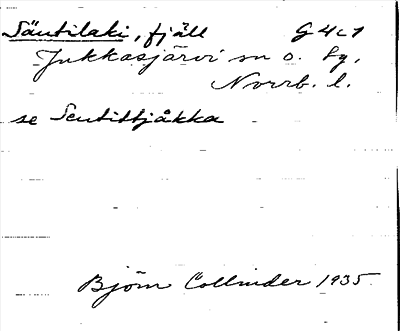 Säutilaki, fjäll G4c1
Jukkasjärvi sn o. lg,
Norrb. l.
se Seutittjåkka
Björn Collinder 1935